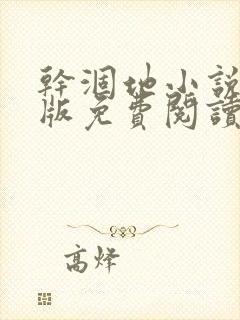 幹涸地小說
版免費閱讀
高烽